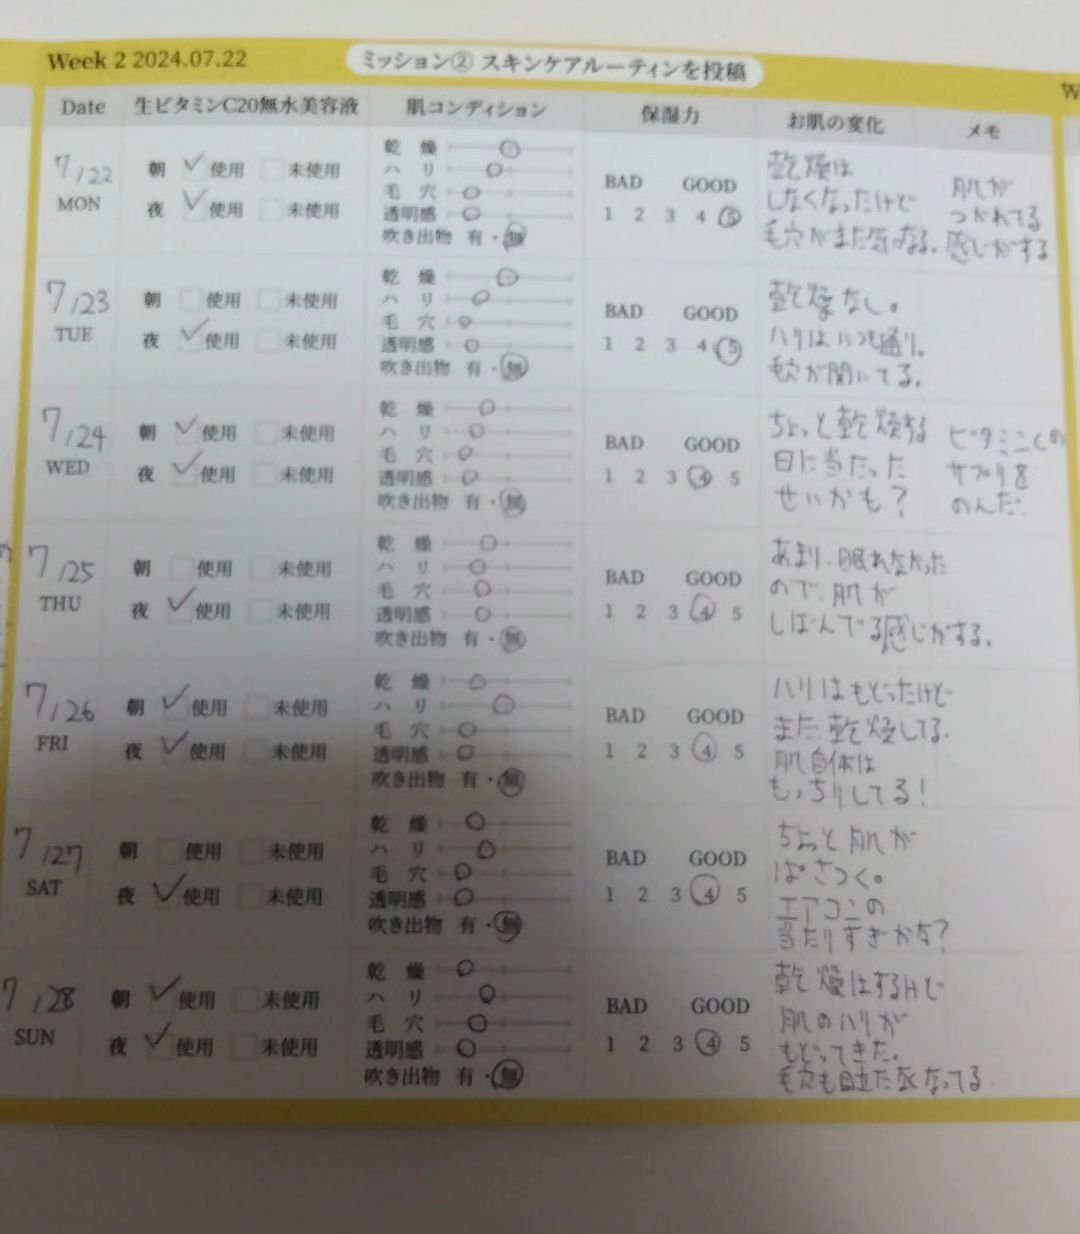 Week 2 2024.07.22
ミッション② スキンケアルーティンを投稿
Date 生ビタミンC20無水美容液 肌コンディション 保湿力 お肌の変化 メモ
7/22
MON
朝 使用 未使用
夜 使用 未使用
乾燥
ハリ
毛穴
透明感
吹き出物 有・無
BAD GOOD
1 2 3 4 5
乾燥は
しなくなったけど
毛穴がまだ気になる。
肌が
つかれてる
感じがする
7/23
TUE
朝 使用 未使用
夜 使用 未使用
乾燥
ハリ
毛穴
透明感
吹き出物 有・無
BAD GOOD
1 2 3 4 5
乾燥なし。
ハリはいつも通り。
毛穴が開いてる。
7/24
WED
朝 使用 未使用
夜 使用 未使用
乾燥
ハリ
毛穴
透明感
吹き出物 有・無
BAD GOOD
1 2 3 4 5
ちょっと乾燥する
日に当たった
せいかも?
ビタミンCの
サプリを
のんだ。
7/25
THU
朝 使用 未使用
夜 使用 未使用
乾燥
ハリ
毛穴
透明感
吹き出物 有・無
BAD GOOD
1 2 3 4 5
あまり、眠れなかった
ので、肌が
しぼんでる感じがする。
7/26
FRI
朝 使用 未使用
夜 使用 未使用
乾燥
ハリ
毛穴
透明感
吹き出物 有・無
BAD GOOD
1 2 3 4 5
ハリはもどったけど
まだ乾燥してる。
肌自体は
もっちりしてる!
7/27
SAT
朝 使用 未使用
夜 使用 未使用
乾燥
ハリ
毛穴
透明感
吹き出物 有・無
BAD GOOD
1 2 3 4 5
ちょっと肌が
ぱさつく。
エアコンの
当たりすぎかな?
7/28
SUN
朝 使用 未使用
夜 使用 未使用
乾燥
ハリ
毛穴
透明感
吹き出物 有・無
BAD GOOD
1 2 3 4 5
乾燥はするけど
肌のハリが
もどってきた。
毛穴も目立たなくなってる。